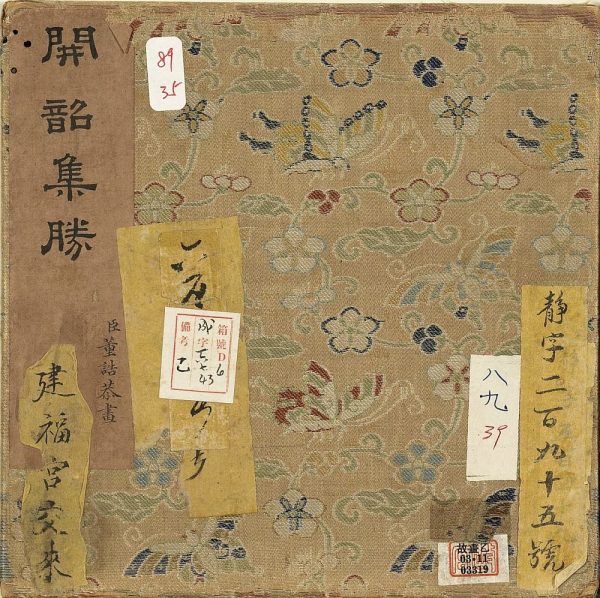 開韶集勝
臣董誥恭書
建福宮交來
89
35
箱號D6
成字
備考
乙
八九
39
靜字二百九十五號
故畫乙
03·11
03319